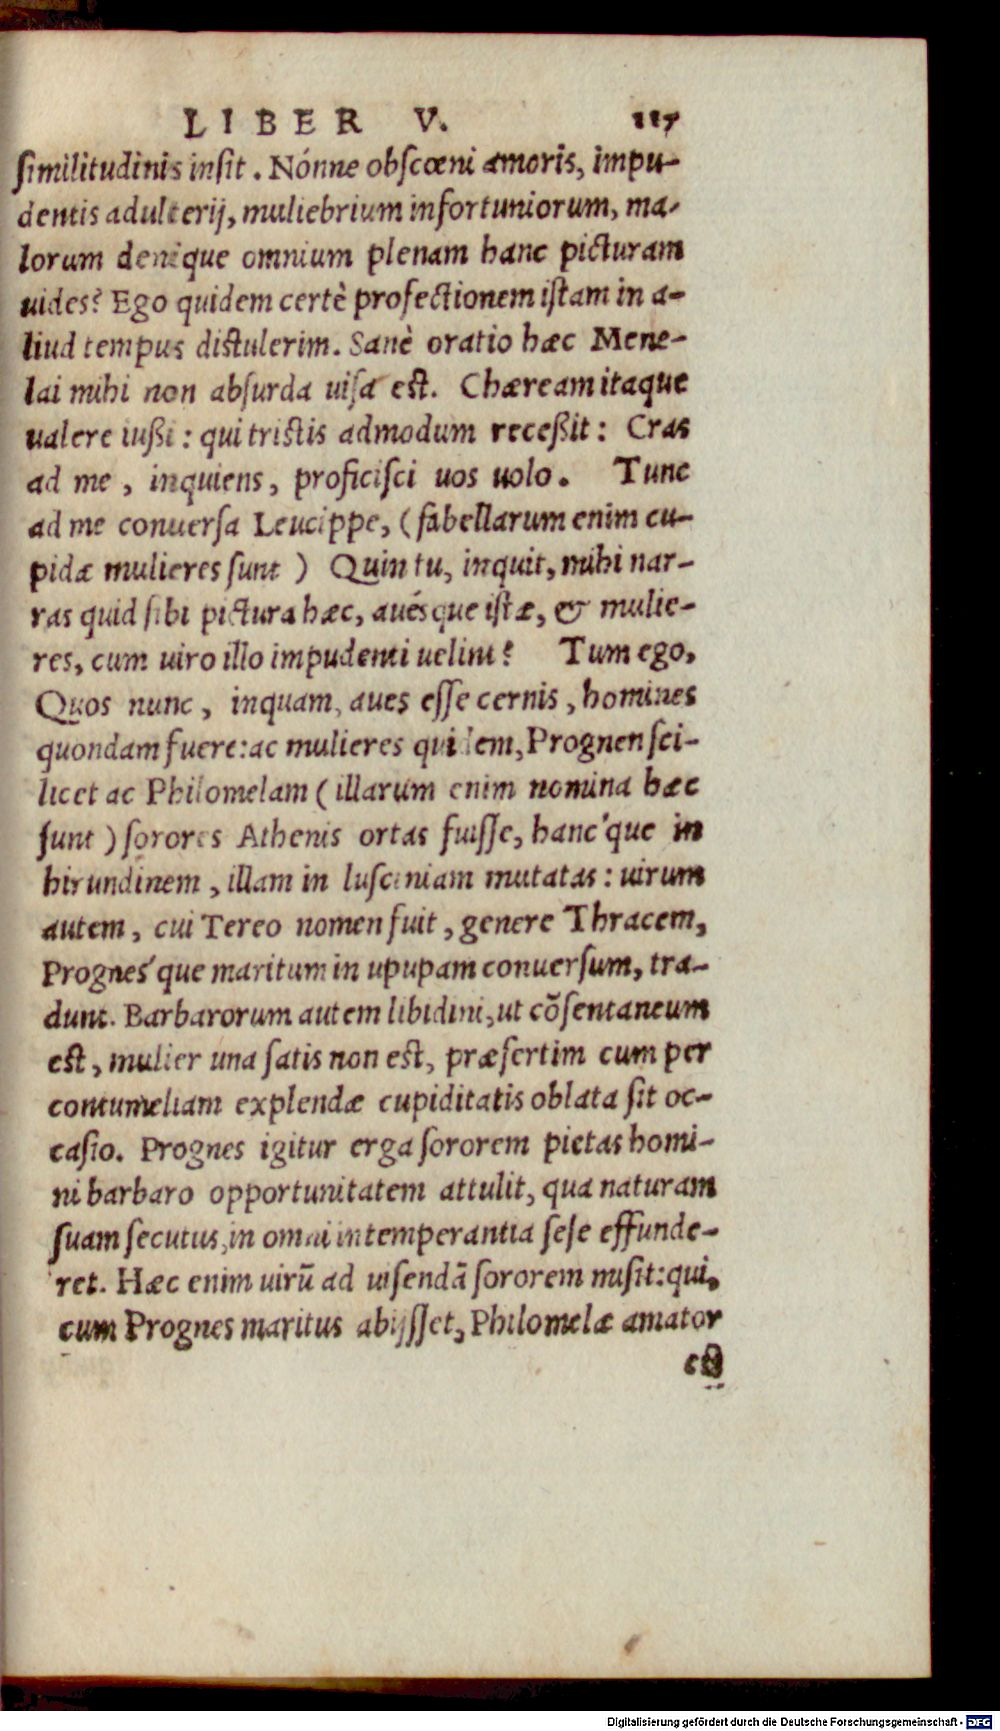 LIBER V. 117
similitudinis insit. Nónne obscœni amoris, impu-
dentis adulterij, muliebrium infortuniorum, ma-
lorum denique omnium plenam hanc picturam
uides? Ego quidem certè profectionem istam in a-
liud tempus distulerim. Sanè oratio hæc Mene-
lai mihi non absurda uisa est. Chæream itaque
ualere iußi: qui tristis admodum receßit: Cras
ad me, inquiens, proficisci uos uolo. Tunc
ad me conuersa Leucippe, (fabellarum enim cu-
pidæ mulieres sunt) Quin tu, inquit, mihi nar-
ras quid sibi pictura hæc, auésque istæ, & mulie-
res, cum uiro illo impudenti uelint? Tum ego,
Quos nunc, inquam, aues esse cernis, homines
quondam fuere: ac mulieres quidem, Prognen sci-
licet ac Philomelam (illarum enim nomina hæc
sunt) sorores Athenis ortas fuisse, hanc'que in
hirundinem, illam in lusciniam mutatas: uirum
autem, cui Tereo nomen fuit, genere Thracem,
Prognes'que maritum in upupam conuersum, tra-
dunt. Barbarorum autem libidini, ut cõsentaneum
est, mulier una satis non est, præsertim cum per
contumeliam explendæ cupiditatis oblata sit oc-
casio. Prognes igitur erga sororem pietas homi-
ni barbaro opportunitatem attulit, qua naturam
suam secutus, in omni intemperantia sese effunde-
ret. Hæc enim uirũ ad uisendã sororem misit: qui,
cum Prognes maritus abijsset, Philomelæ amator
Digitalisierung gefördert durch die Deutsche Forschungsgemeinschaft - DFG